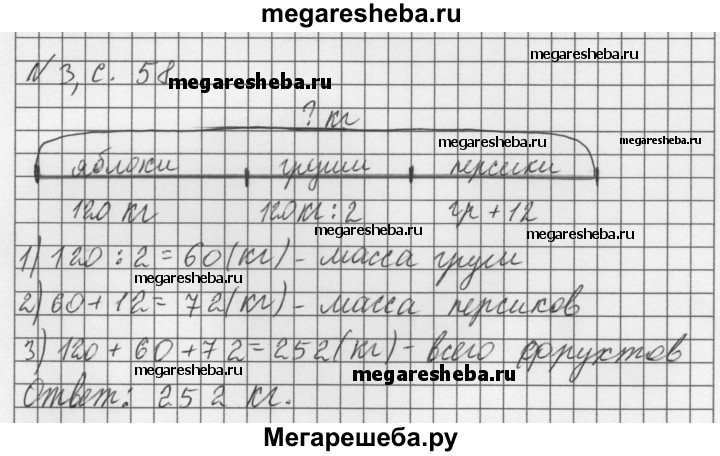 megaresheba.ru
megaresheba.ru
N 3, с. 58
megaresheba.ru
? кг
megaresheba.ru
megaresheba.ru
яблоки груши персики
120 кг 120кг : 2 гр + 12
megaresheba.ru
1) 120 : 2 = 60 (кг) - масса груш
megaresheba.ru
2) 60 + 12 = 72 (кг) - масса персиков
megaresheba.ru
megaresheba.ru
3) 120 + 60 + 72 = 252 (кг) - всего фруктов
megaresheba.ru
megaresheba.ru
Ответ: 252 кг.
Мегарешеба.ру